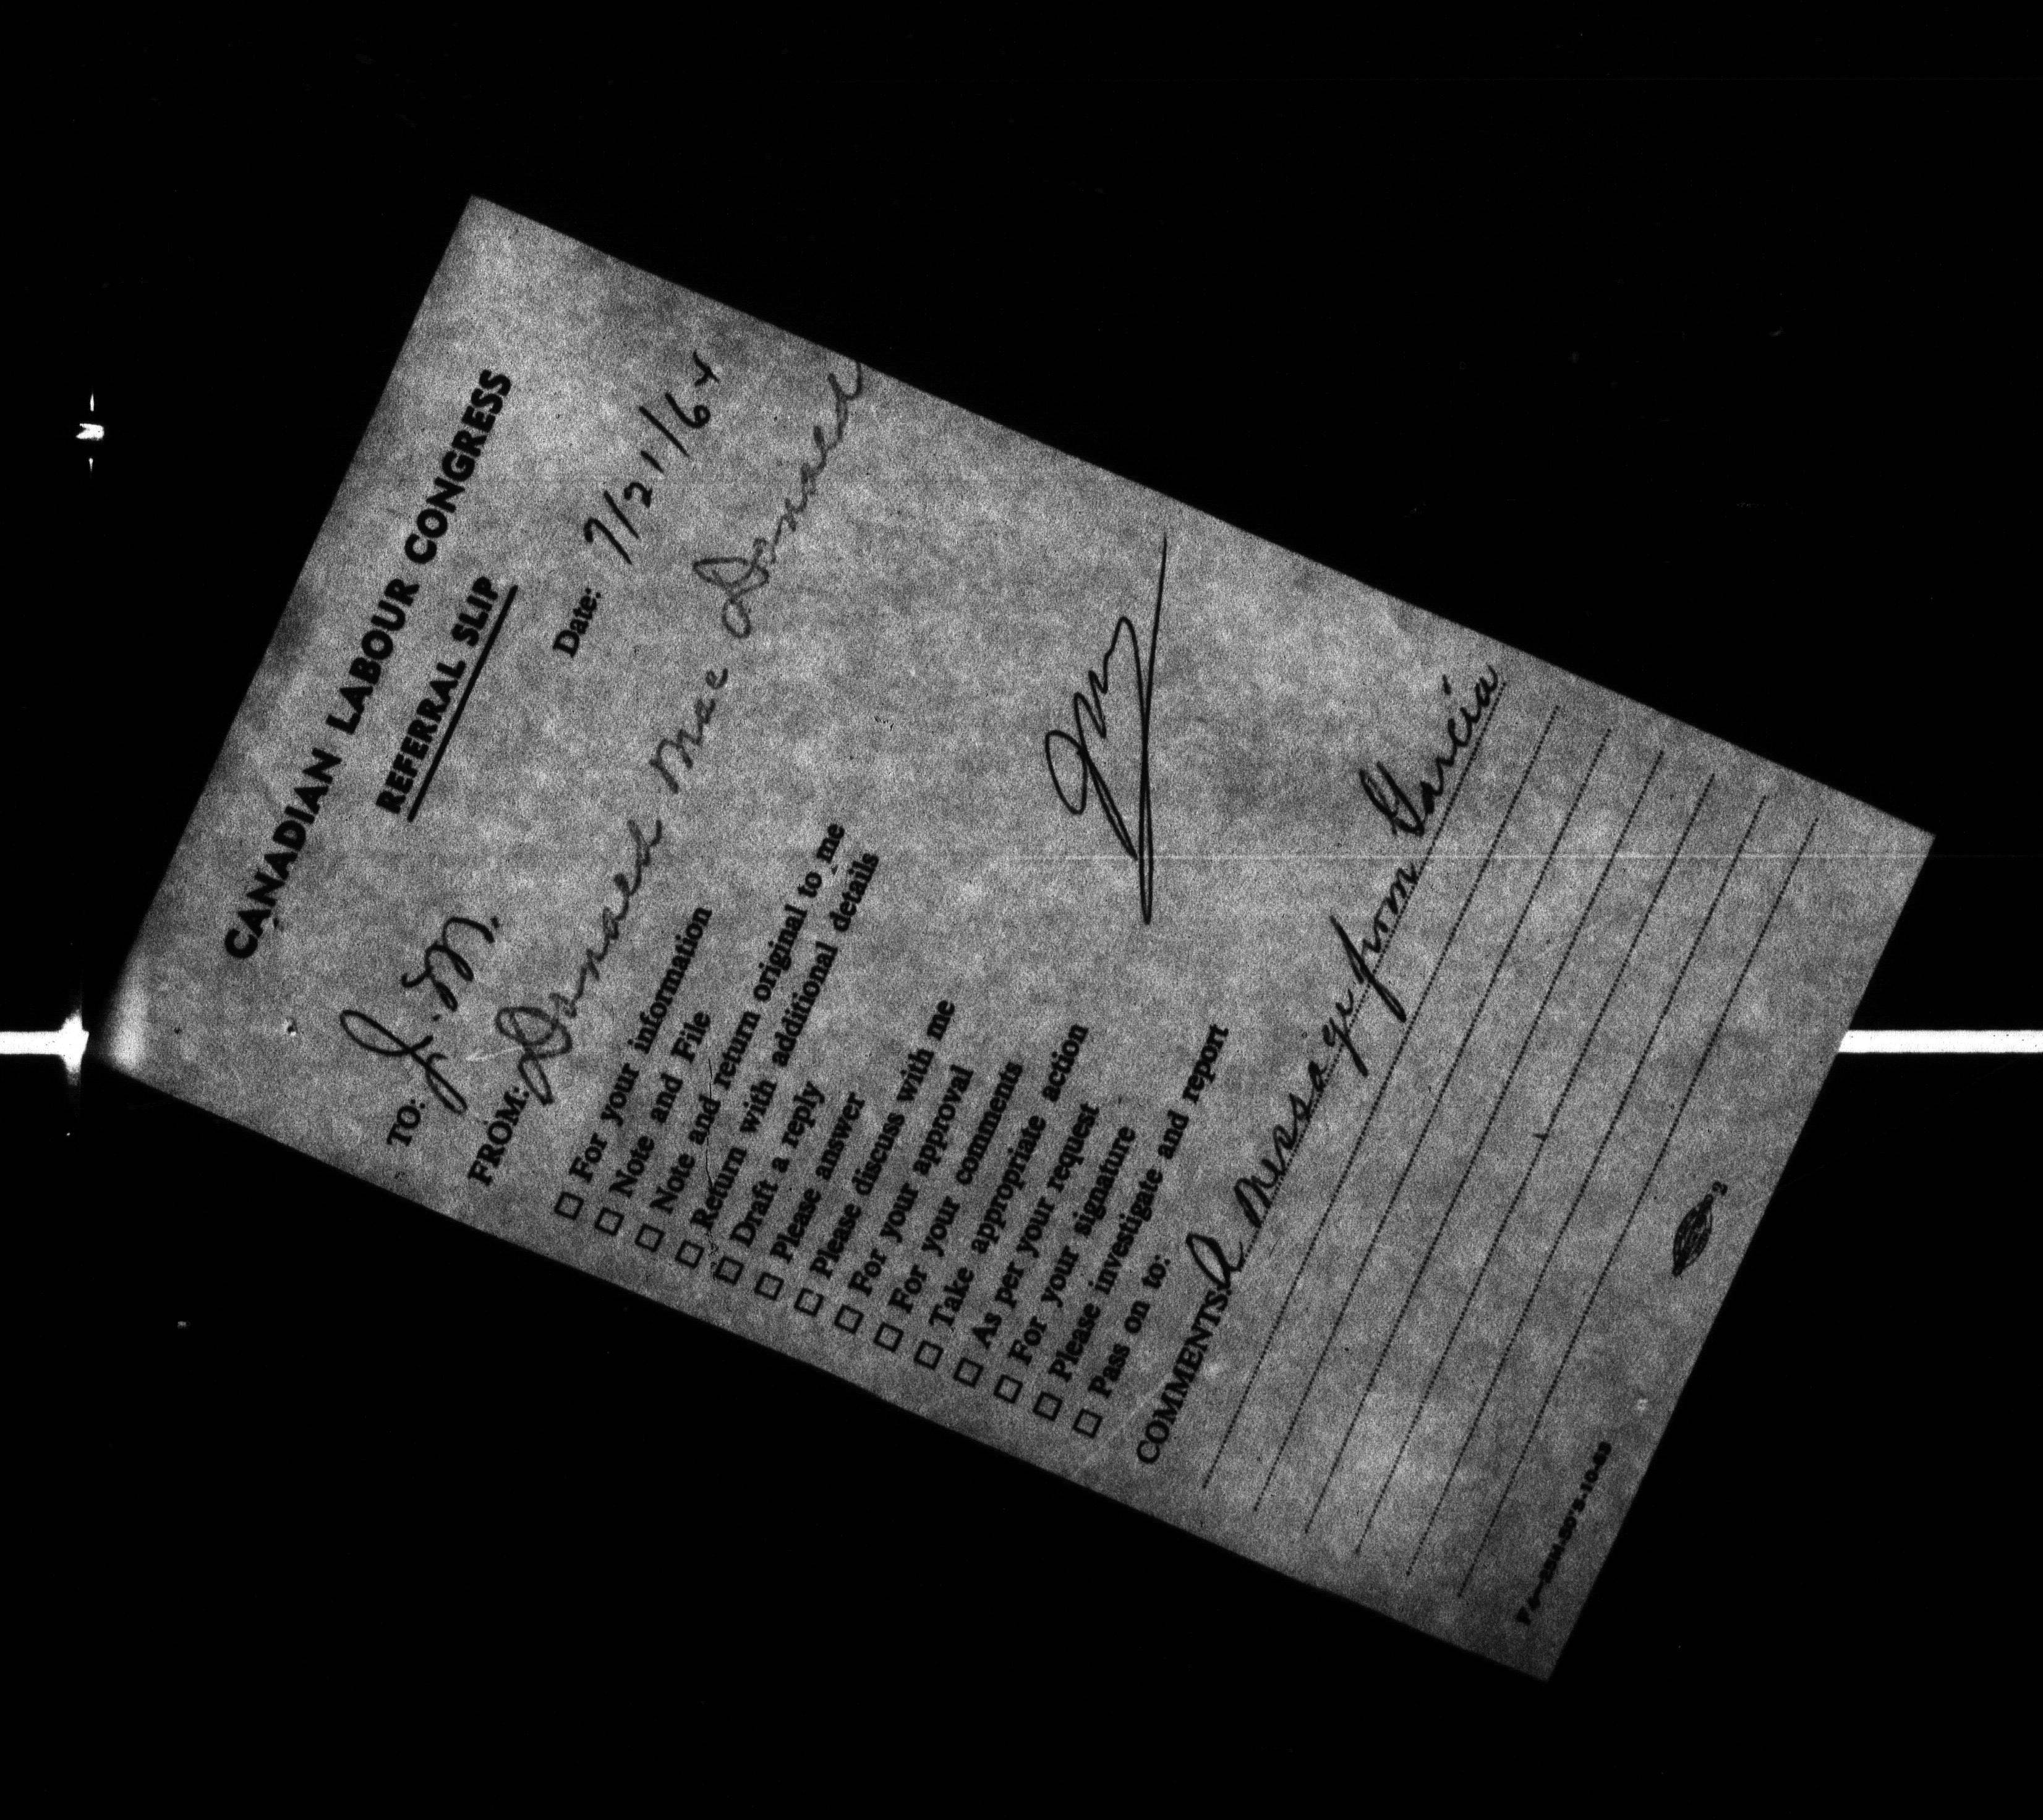 CANADIAN LABOUR CONGRESS
REFERRAL SLIP
Date: 7/21/64
TO: J.M.
FROM: Donald MacDonald
☐ For your information
☐ Note and File
☐ Note and return original to me
☐ Return with additional details
☐ Draft a reply
☐ Please answer
☐ Please discuss with me
☐ For your approval
☐ For your comments
☐ Take appropriate action
☐ As per your request
☐ For your signature
☐ Please investigate and report
☐ Pass on to:
JM
COMMENTS: A message from Garcia
2